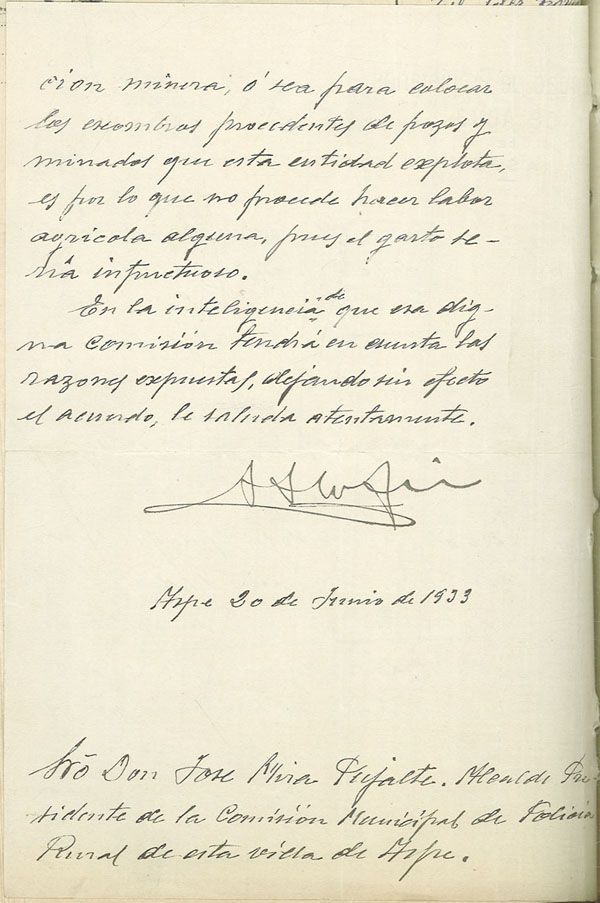 cion minera, ó sea para colocar
los escombros procedentes de pozos y
minados que esta entidad explota,
es por lo que no procede hacer labor
agricola alguna, pues el gasto se-
ria infructuoso.
En la inteligencia de que esa dig-
na Comisión tendrá en cuenta las
razones expuestas, dejando sin efecto
el acuerdo, le saluda atentamente.
Aspe 20 de Junio de 1933
Sro Don Jose Mira Pujalte. Alcalde Pre-
sidente de la Comisión Municipal de Policia
Rural de esta villa de Aspe.